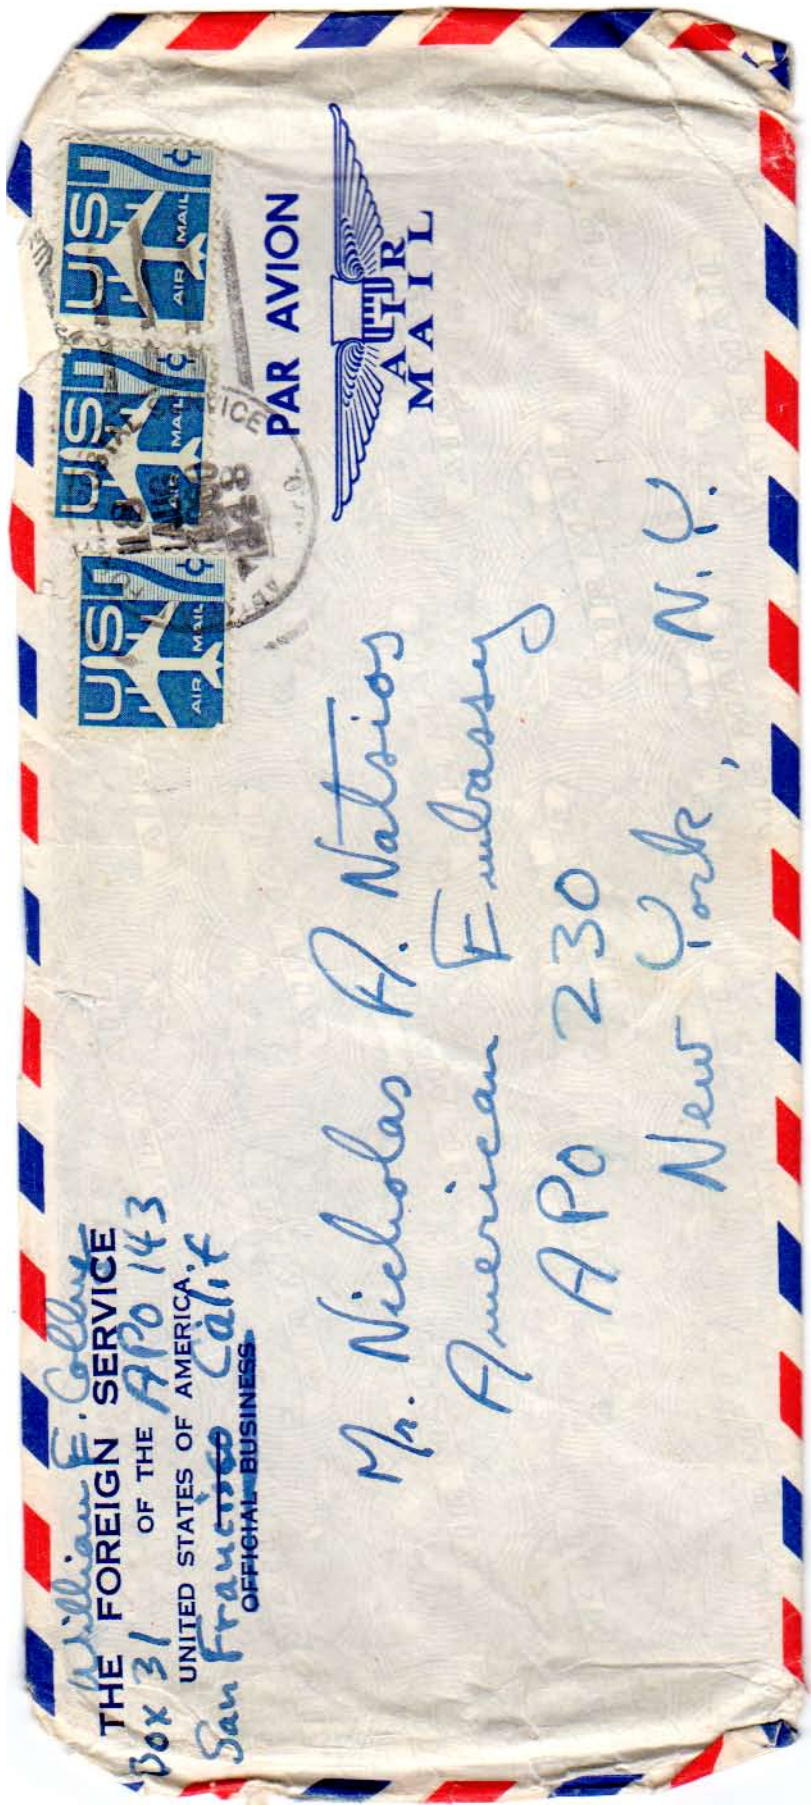 William E. Colby
THE FOREIGN SERVICE
Box 31 OF THE APO 143
UNITED STATES OF AMERICA
San Francisco Calif
OFFICIAL BUSINESS
US 7¢
AIR MAIL
US 7¢
AIR MAIL
US 7¢
AIR MAIL
POSTAL SERVICE
AUG
PAR AVION
AIR
MAIL
Mr. Nicholas A. Natsios
American Embassy
APO 230
New York, N.Y.